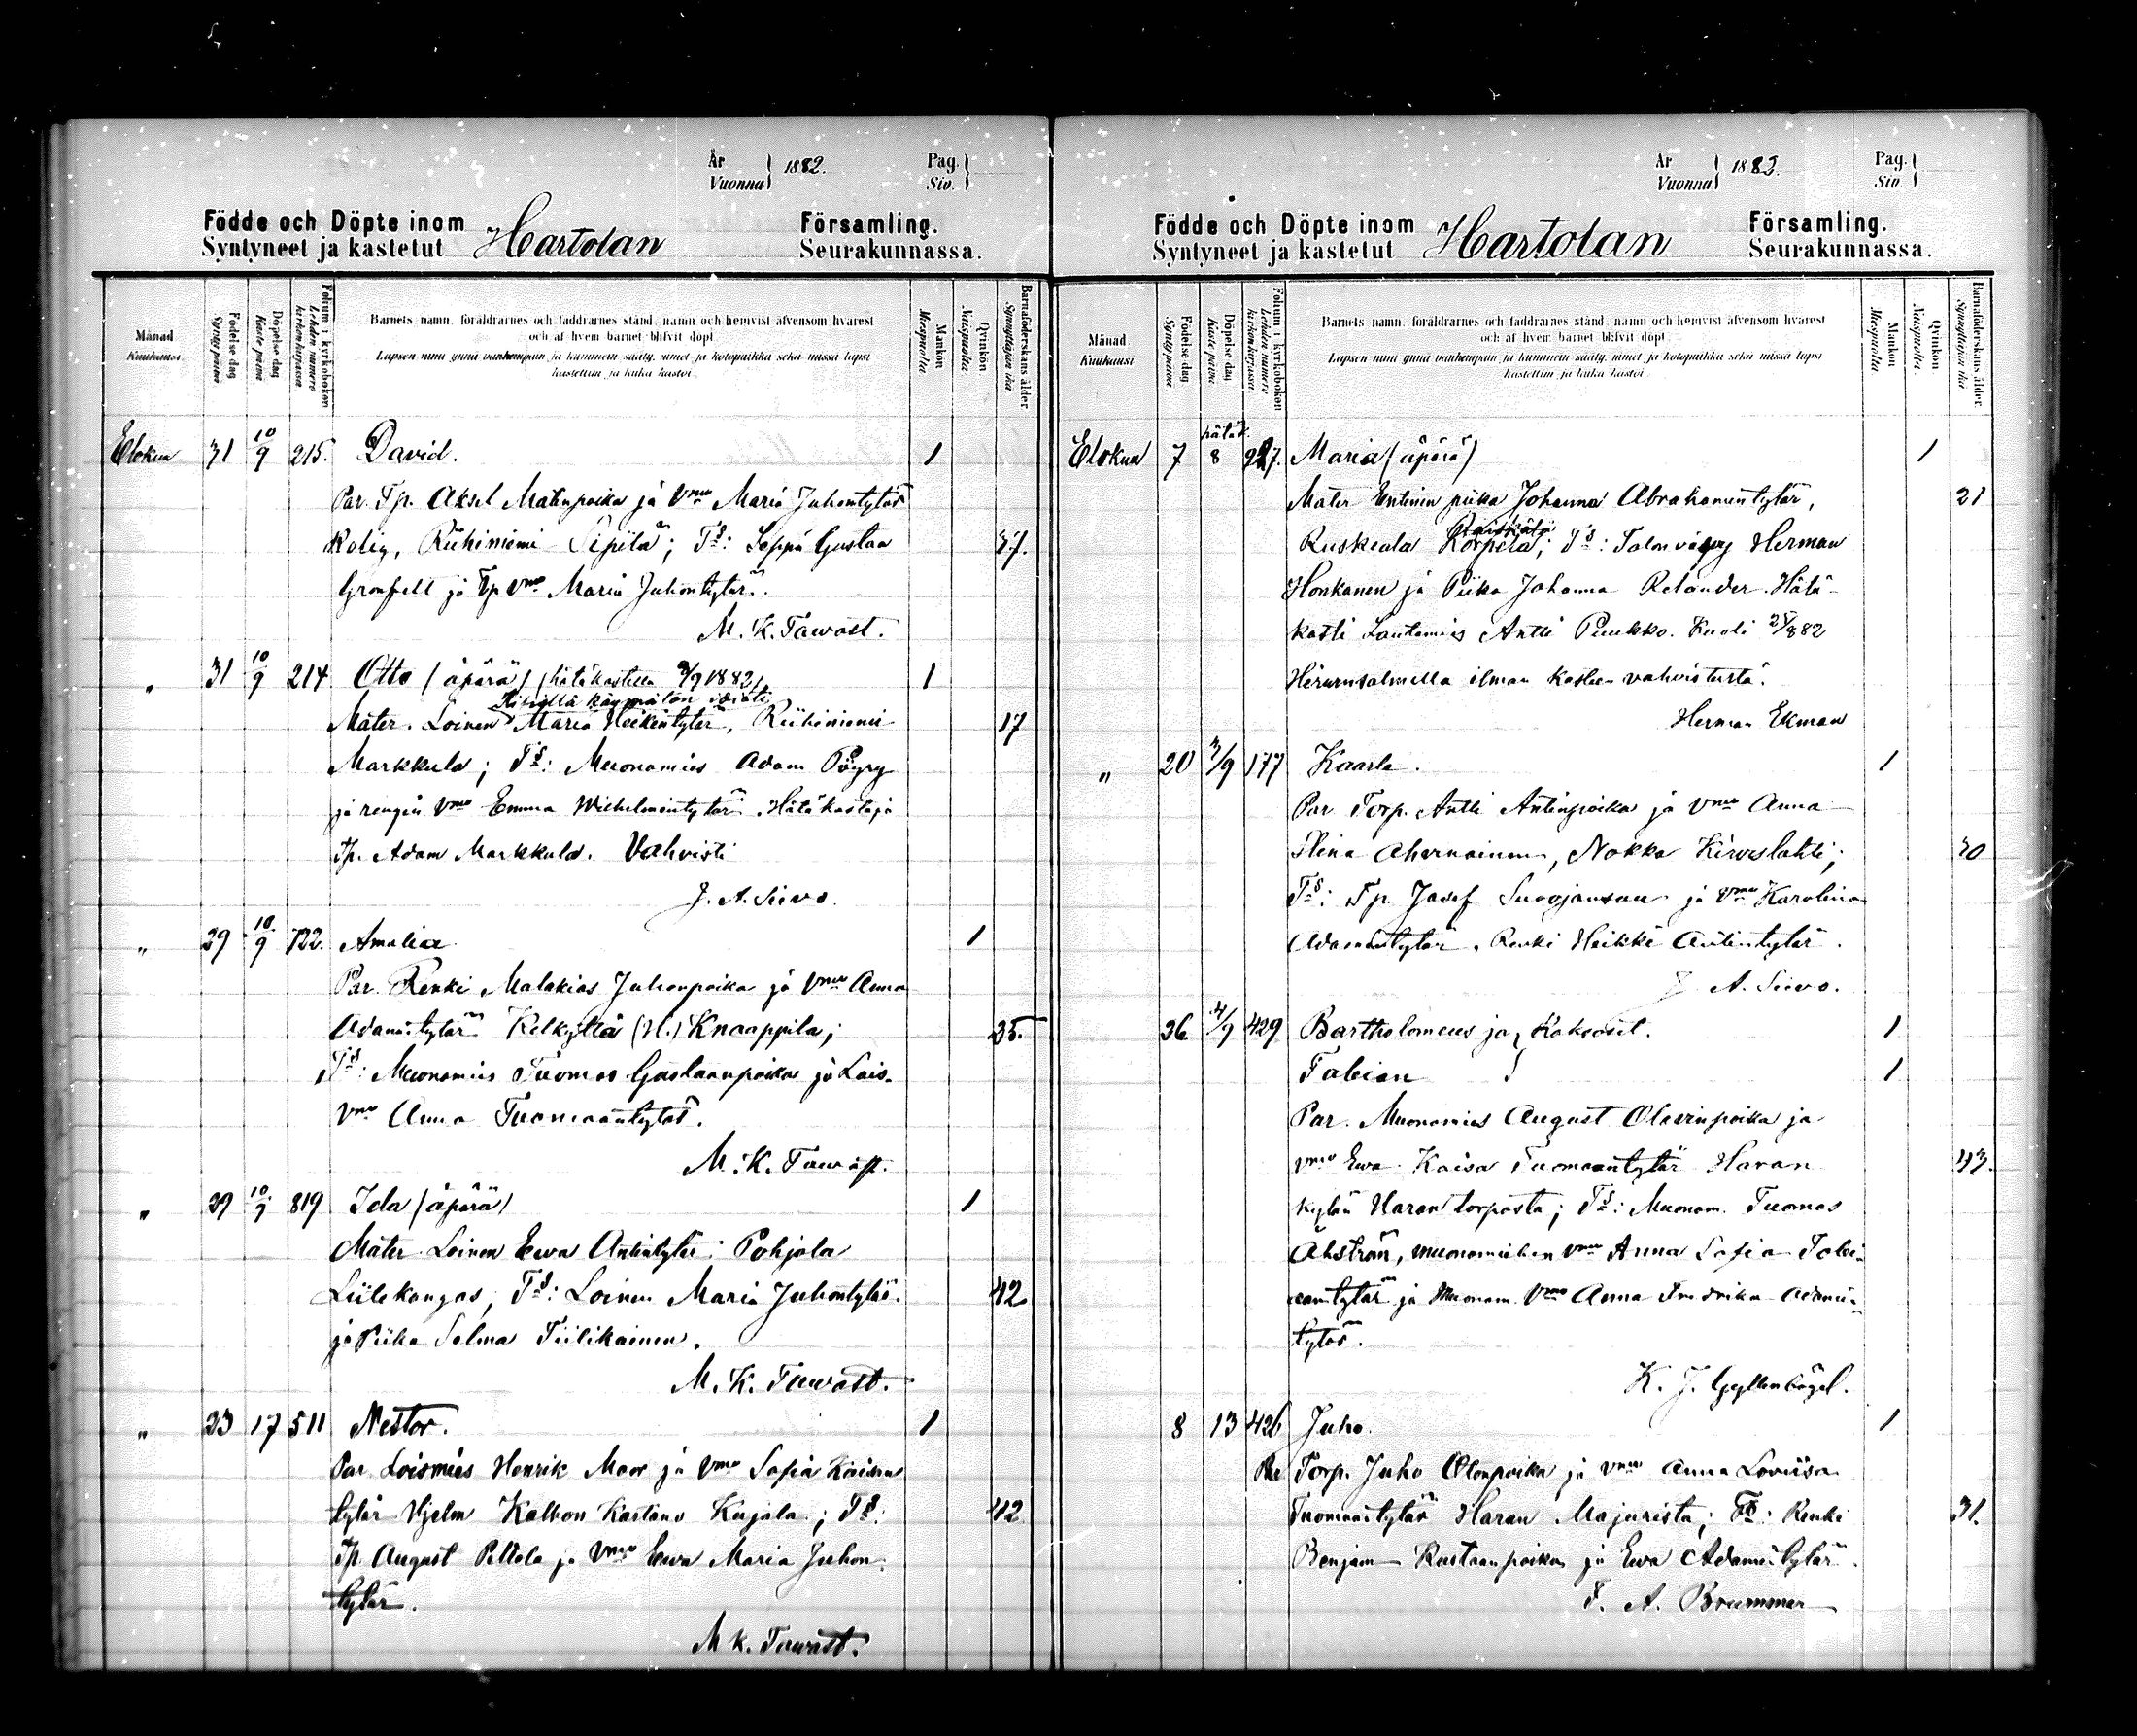 År Vuonna 1882. Pag. Siv.
Födde och Döpte inom Hartolan Församling.
Syntyneet ja kastetut Seurakunnassa.
Månad Kuukausi
Födelse dag Synty päivä
Döpelse dag Kaste päivä
Folium i kyrkoboken Lehden numero kirkonkirjassa
Barnets namn, föräldrarnes och faddrarnes stånd, namn och hemvist äfvensom hvarest
och af hvem barnet blifvit döpt
Lapsen nimi ynnä vanhempain ja kummein sääty, nimet ja kotopaikka sekä missä lapsi
kastettiin ja kuka kastoi
Mankön Miespuolta
Qvinkön Naispuolta
Barnaföderskans ålder Synnyttäjän ikä
Elokuu 31 10/9 215. David. 1
Par. Tp. Aksel Matinpoika ja Vmo Maria Juhontytär
Rolig, Riihiniemi Sipilä; Ts: Seppä Gustaa 37.
Gronfelt ja Tp Vmo Maria Juhontytär.
M. K. Tawast.
" 31 10/9 214 Otto (äpärä) (hätäkastettu 2/9 1882) 1
Ripillä käymätön idioti
Mater. Loinen Maria Heikintytär, Riihiniemi 17
Markkula; Ts: Muonamies Adam Pöyry
ja rengin Vmo Emma Wilhelmintytär. Hätäkastaja
Tp. Adam Markkula. Vahvisti
J. A. Siivo.
" 29 10/9 722. Amalia 1
Par. Renki Malakias Juhonpoika ja Vmo Anna
Adamintytär Kelkyttä (H.) Knaappila; 35.
Ts: Muonamies Tuomas Gustaanpoika ja Lois.
Vmo Anna Tuomaantytär.
M. K. Tawast.
" 29 10/9 819 Ida (äpärä) 1
Mater Loinen Ewa Antintytär Pohjola
Liilekangas, Ts: Loinen Maria Juhontytär 42
ja Piika Selma Tiilikainen.
M. K. Tawast.
" 23 17 511 Nestor. 1
Par. Loismies Henrik Moor ja Vmo Sofia
tytär Hjelm Kalhon Kastano Kujala; Ts: 42
Tp. August Peltola ja Vmo Ewa Maria Juhon-
tytär.
M K. Tawast.
År Vuonna 1882. Pag. Siv.
Födde och Döpte inom Hartolan Församling.
Syntyneet ja kastetut Seurakunnassa.
Månad Kuukausi
Födelse dag Synty päivä
Döpelse dag Kaste päivä
Folium i kyrkoboken Lehden numero kirkonkirjassa
Barnets namn, föräldrarnes och faddrarnes stånd, namn och hemvist äfvensom hvarest
och af hvem barnet blifvit döpt
Lapsen nimi ynnä vanhempain ja kummein sääty, nimet ja kotopaikka sekä missä lapsi
kastettiin ja kuka kastoi
Mankön Miespuolta
Qvinkön Naispuolta
Barnaföderskans ålder Synnyttäjän ikä
hätäk.
Elokuu 7 8 927. Maria (äpärä) 1
Mater Entinen piika Johanna Abrahamintytär, 21
Ruskeala Korpela; Ts: Talon vävy Herman
Honkanen ja Piika Johanna Relander. Hätä-
kasti Lautamies Antti Puukko. Kuoli 25/8 82
Hirvensalmella ilman kasteen vahvistusta.
Herman Ekman
" 20 3/9 177 Kaarle. 1
Par Torp. Antti Antinpoika ja Vmo Anna
Stina Ahvenainen, Nokka Kirveslahti; 30
Ts: Tp. Josef Suvojansuu ja Vmo Karolina
Adamintytär, Renki Heikki Antintytär.
J. A. Siivo.
26 4/9 429 Bartholomeus ja } Kaksoset. 1
Fabian 1
Par. Muonamies August Olavinpoika ja
vmo Ewa Kaisa Tuomaantytär Haran 43.
kylän Haran torpasta; Ts: Muonam. Tuomas
Åhström, muonamiehen vmo Anna Sofia Tobi-
aantytär ja Muonam. Vmo Anna Fredrika Adamin-
tytär.
K. J. Gyllenbögel.
8 13 426 Juho. 1
Par Torp. Juho Olonpoika ja vmo Anna Loviisa
Tuomaantytär Haran Majurista; Ts: Renki 31.
Benjam Kustaanpoika ja Ewa Adamintytär.
F. A. Brummer